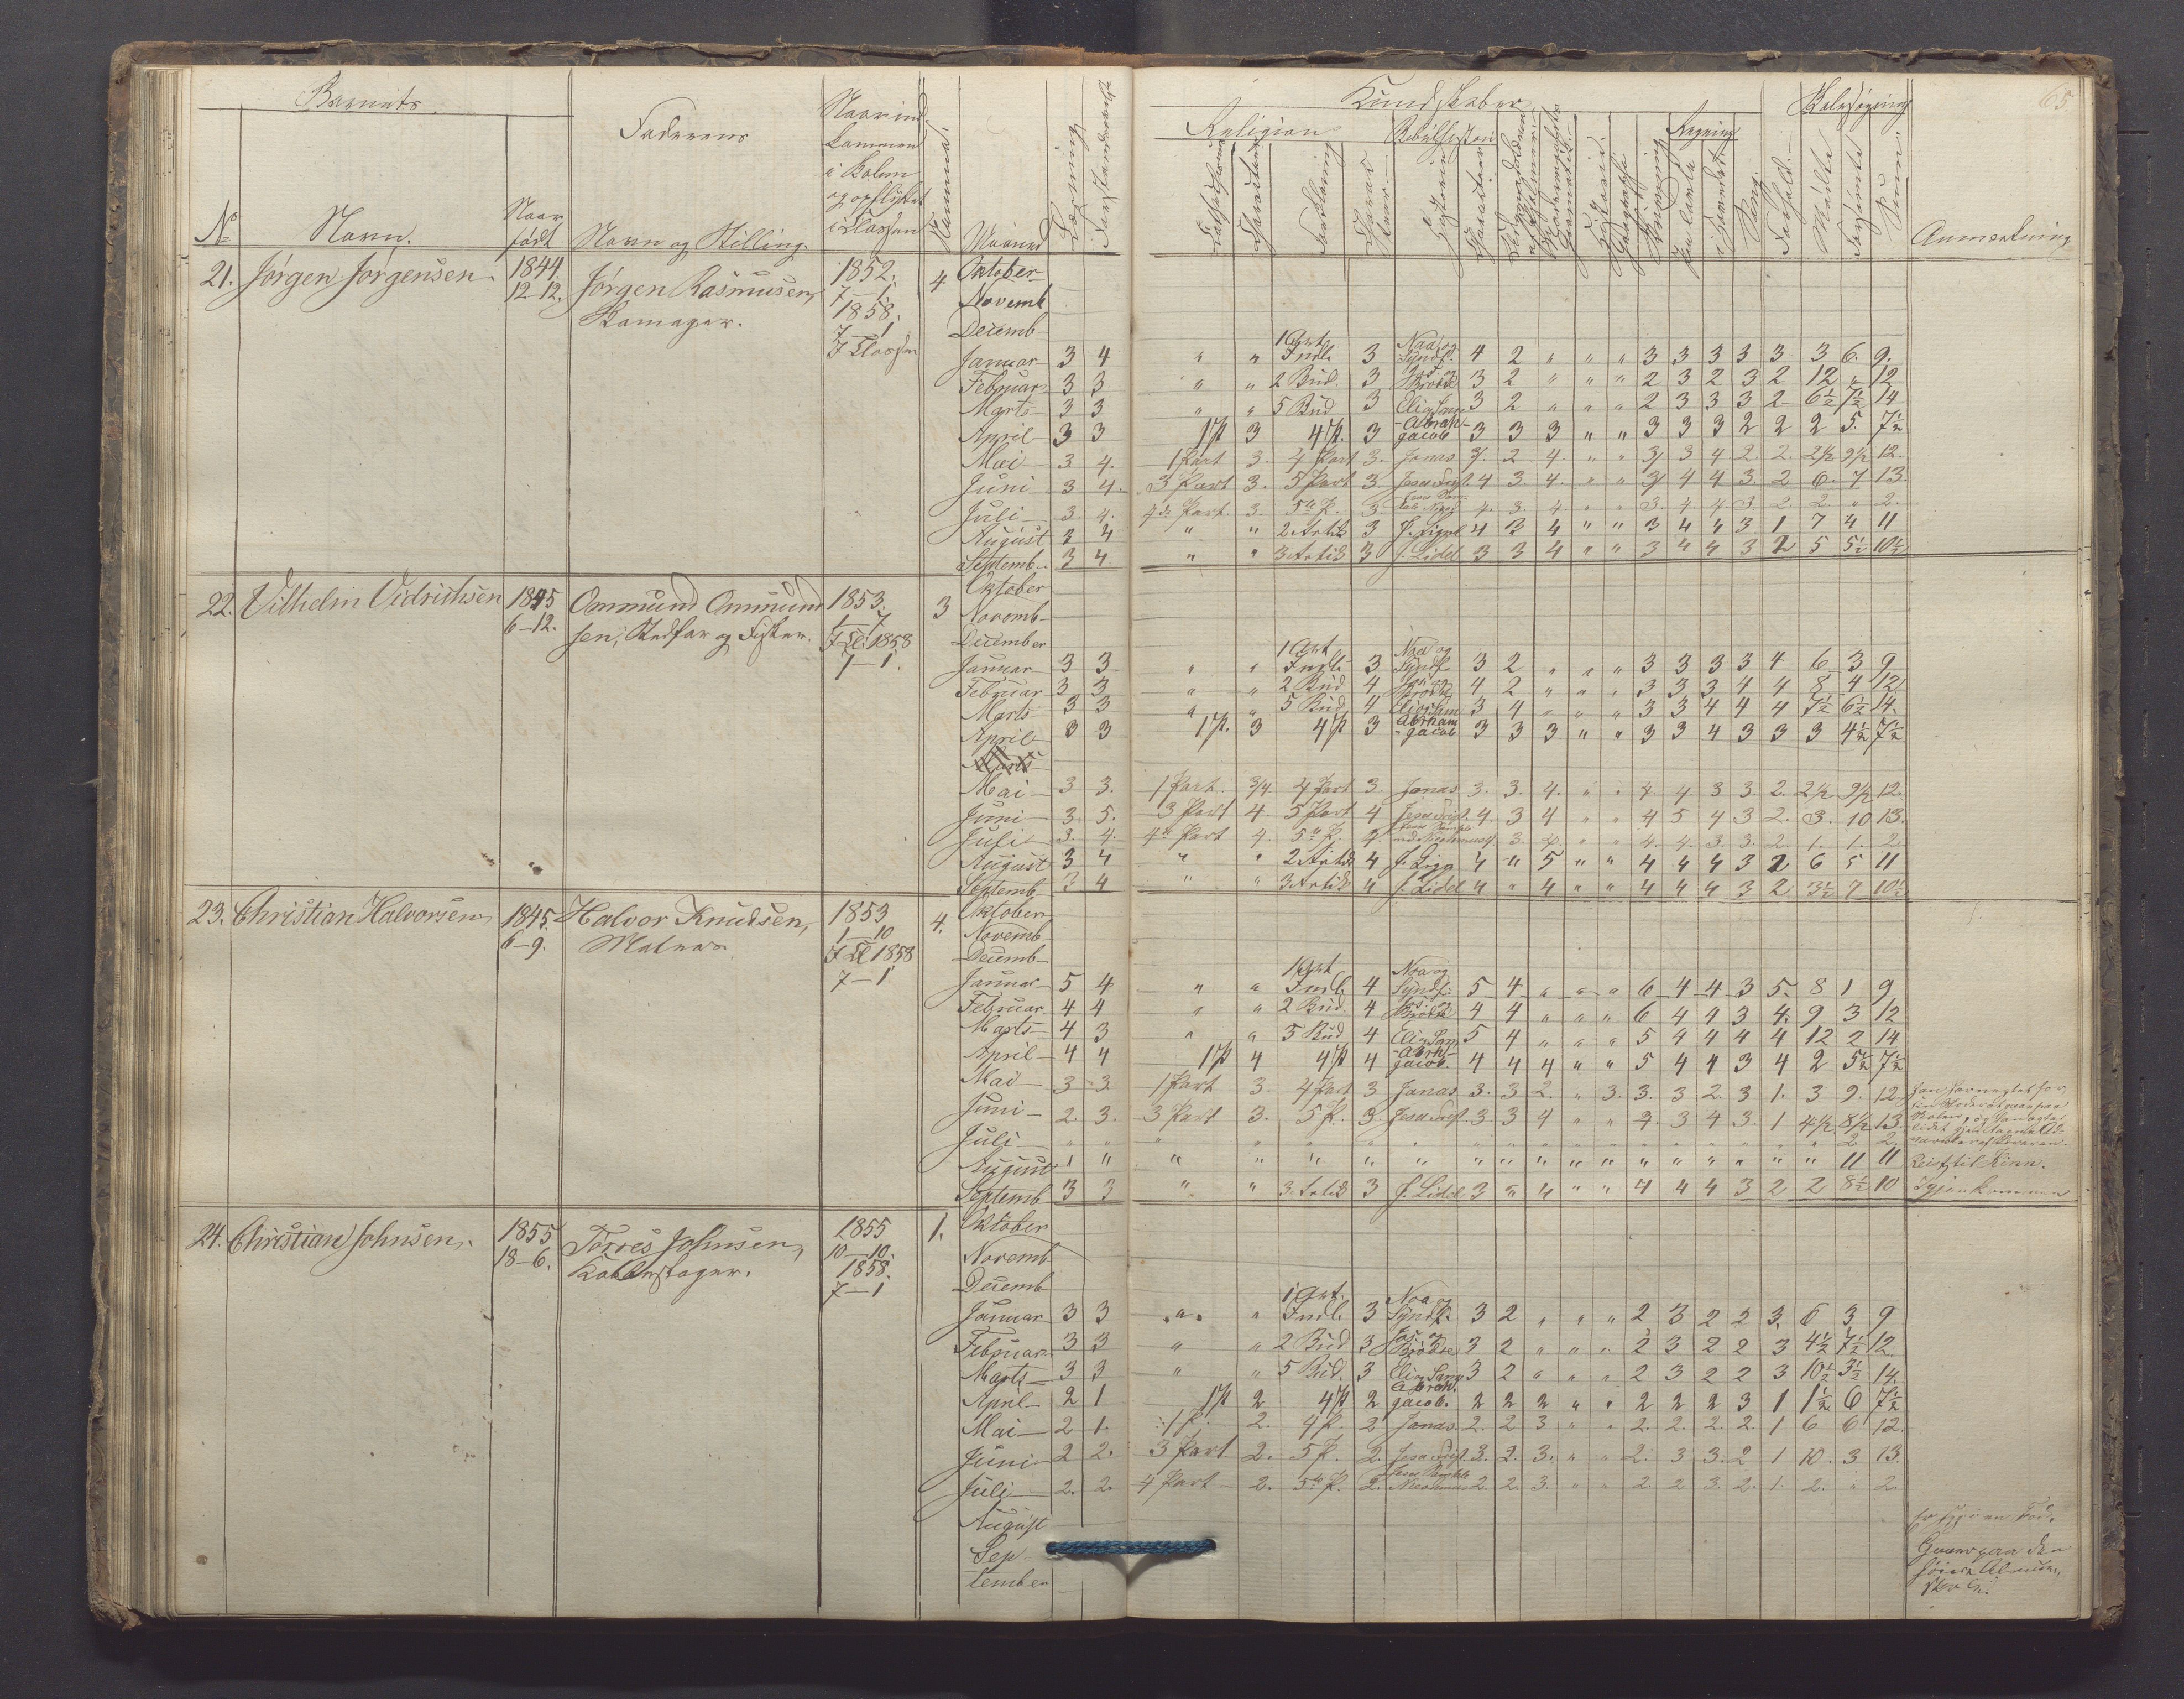 65
Barnets
Faderens
Naar ind-
kommen
i Skolen
og opflyttet
i Classen
Nummer
Maaned
Læsning
Forstandsøvelse
No
Navn.
Naar
født
Navn og Stilling.
Kundskaber
Skolesøgning
Religion
Bibelhistori
Regning
Forklaring
Historie
Geographie
Skrivning
Sang.
Forhold.
Mødte
Forsømte
Sum
Anmærkning
21. Jørgen Jørgensen. 1844. 12-12. Jørgen Rasmusen, 1852. 7-1. 4
Skomager. 1858. 7-1 I Classen
Oktober
Novemb
Decemb
1 Art Noa og
Januar 3 4 " " Indl. 3 Syndf. 4 2 " " " 3 3 3 3 3 3 6. 9.
Februar 3 3 " " 2 Bud. 3 Jos. og Brødre 3 2 " " " 2 3 2 3 2 12 " 12
Marts 3 3 " " 5 Bud 3 Eli og Sam 3 2 " " " 2 3 3 3 2 6½ 7½ 14
April 3 3 1 P 3 4 P. 3 Abrah- Jacob 3 3 3 " " 3 3 3 2 2 2 5. 7½
Mai 3. 4. 1 Part 3. 4 Part 3. Jonas 3. 2 4. " " 3 3 4 2. 2. 2½ 9½ 12.
Juni 3 4. 3 Part 3. 5 Part 3. 4 3 4. " " 3 4 4 3. 2 6. 7 13.
Juli 3. 4. 4de Part. 3. 5te P. 3. 4. 3. 4. " " 3. 4. 4. 3. 2. 2. " 2.
August 3 4 " " 2 Artik 3 4 3 4 " " 3 4 4 3 1 7 4 11
Septemb. 3 4 " " 3 Artik 3 J. Lidel 3 3 4 " " 3 4 4 3 2 5 5½ 10½
22. Vilhelm Vidrichsen 1845 6-12. Ommund Ommund 1853. 1-7 3
sen, Stedfar og Fisker. I Cl. 1858 7-1.
Oktober
Novemb
December
1 Art Noa og
Januar 3 3 " " Indl. 3 Syndf. 3 2 " " " 3 3 3 3 4 6 3 9
Februar 3 3 " " 2 Bud 4 Jos. og Brødre 4 2 " " " 3 3 3 4 4 8 4 12
Marts 3 3 " " 5 Bud 4 Eli og Sam 3 4 " " " 3 3 4 4 4 7½ 6½ 14.
April 3 3 1 P. 3 4 P 3 Abraham - Jacob 3 3 3 " " 3 3 4 3 3 3 4½ 7½
Marts
Mai 3 3. 1 Part. 3/4 4 Part 3. Jonas 3. 3. 4. " " 4. 4 3 3. 2. 2½ 9½ 12.
Juni 3 5. 3 Part 4. 5 Part 4 4. 3 4 " " 4 5 4 3 2. 3. 10 13.
Juli 3. 4. 4de Part 4. 5te P. 4. 3. 4. " " 4. 4. 3. 3. 2. 1. 1. 2.
August 3 4 " " 2 Artik 4 4 " 5 " " 4 4 4 3 2 6 5 11
Septemb 3 4 " " 3 Artik 4 J. Lidel 4 " 4 " " 4 4 4 3 2 3½ 7 10½
23. Christian Halvorsen, 1845. 6-9. Halvor Knudsen, 1853 1-10 4.
Matros I Cl 1858 7-1
Oktober
Novemb
Decemb
1 Art Noa og
Januar 5 4 " " Indl. 4 Syndf. 5 4 " " " 6 4 4 3 5. 8 1 9
Februar 4 4 " " 2 Bud. 4 Jos. og Brødre 4 4 " " " 6 4 4 3 4. 9 3 12
Marts 4 3 " " 5 Bud 4 Eli og Sam 5 4 " " " 5 4 4 4 4 12 2 14
April 4 4 1 P 4 4 P 4 -Abrh- Jacob. 4 4 4 " " 5 4 4 3 4 2 5½ 7½
Mai 3 3 1 Part 3. 4 Part 3 Jonas 3. 3 2. " 3. 3. 3 2. 3 1. 3 9. 12.
Juni 2. 3. 3 Part 3. 5 P. 3. 3 3 4 " " 4. 3 4 3. 1 4½ 8½ 13.
Juli " " " " " " " " " " " " " " " " " " 2 2.
August 1 " " " " " " " " " " " " " " " " " 11 11 Reist til Kinn.
Septemb 3 3 " " 3 Artik 3 J. Lidel 3 " 4 " " 4 4 4 3 2 2 8½ 10 Igjenkommen
24. Christian Johnsen. 1855 18-6. Torres Johnsen, 1855 10-10. 1.
1858. 7-1
Oktober
Novemb
Decemb
1 Art. Noa og
Januar 3 3 " " Indl. 3 Syndf. 3 2 " " " 2 3 2 2 3. 6 3 9
Februar 3 3 " " 2 Bud 3 Jos. og Brødre 3 2 " " " 2 3 2 2 3 4½ 7½ 12.
Marts 3 3 " " 5 Bud. 3 Eli og Sam 3 2 " " " 2 3 2 2 3 10½ 3½ 14.
April 2 1 1 P 2 4 P 2 Abrah. Jacob. 2 2 2 " " 2 2 2 3 1 1½ 6 7½
Mai 2 1. 1 P. 2. 4 P. 2 Jonas. 2. 2 3 " " 2. 2. 2. 2. 1 6 6 12.
Juni 2 2. 3 Part 2. 5 P. 2. 3. 2. 3. " " 2. 3 3. 2 1 10. 3 13.
Juli 2. 2. 4 Part 2. 5te P. 2. 2. 2. 3. " " 2. 2 3. 2. 1. 2. " 2.
August
Sep-
tember